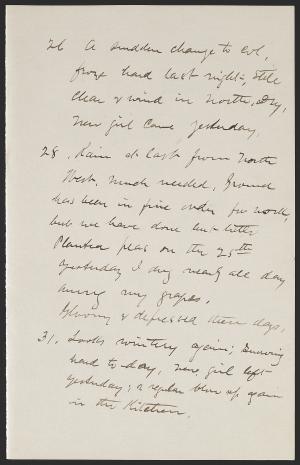 26 A sudden change to col,
froze hard last night, still
clear & wind in North, Dry,
New girl came yesterday.
28. Rain at last from North
West, much needed, Ground
has been in fine order for work,
but we have done but little
Planted peas on the 25th
yesterday I dug nearly all day
among my grapes,
Gloomy & depressed these days,
31, Looks wintery again; Snowing
hard to day, new girl left
yesterday; a regular blow up again
in the Kitchen.